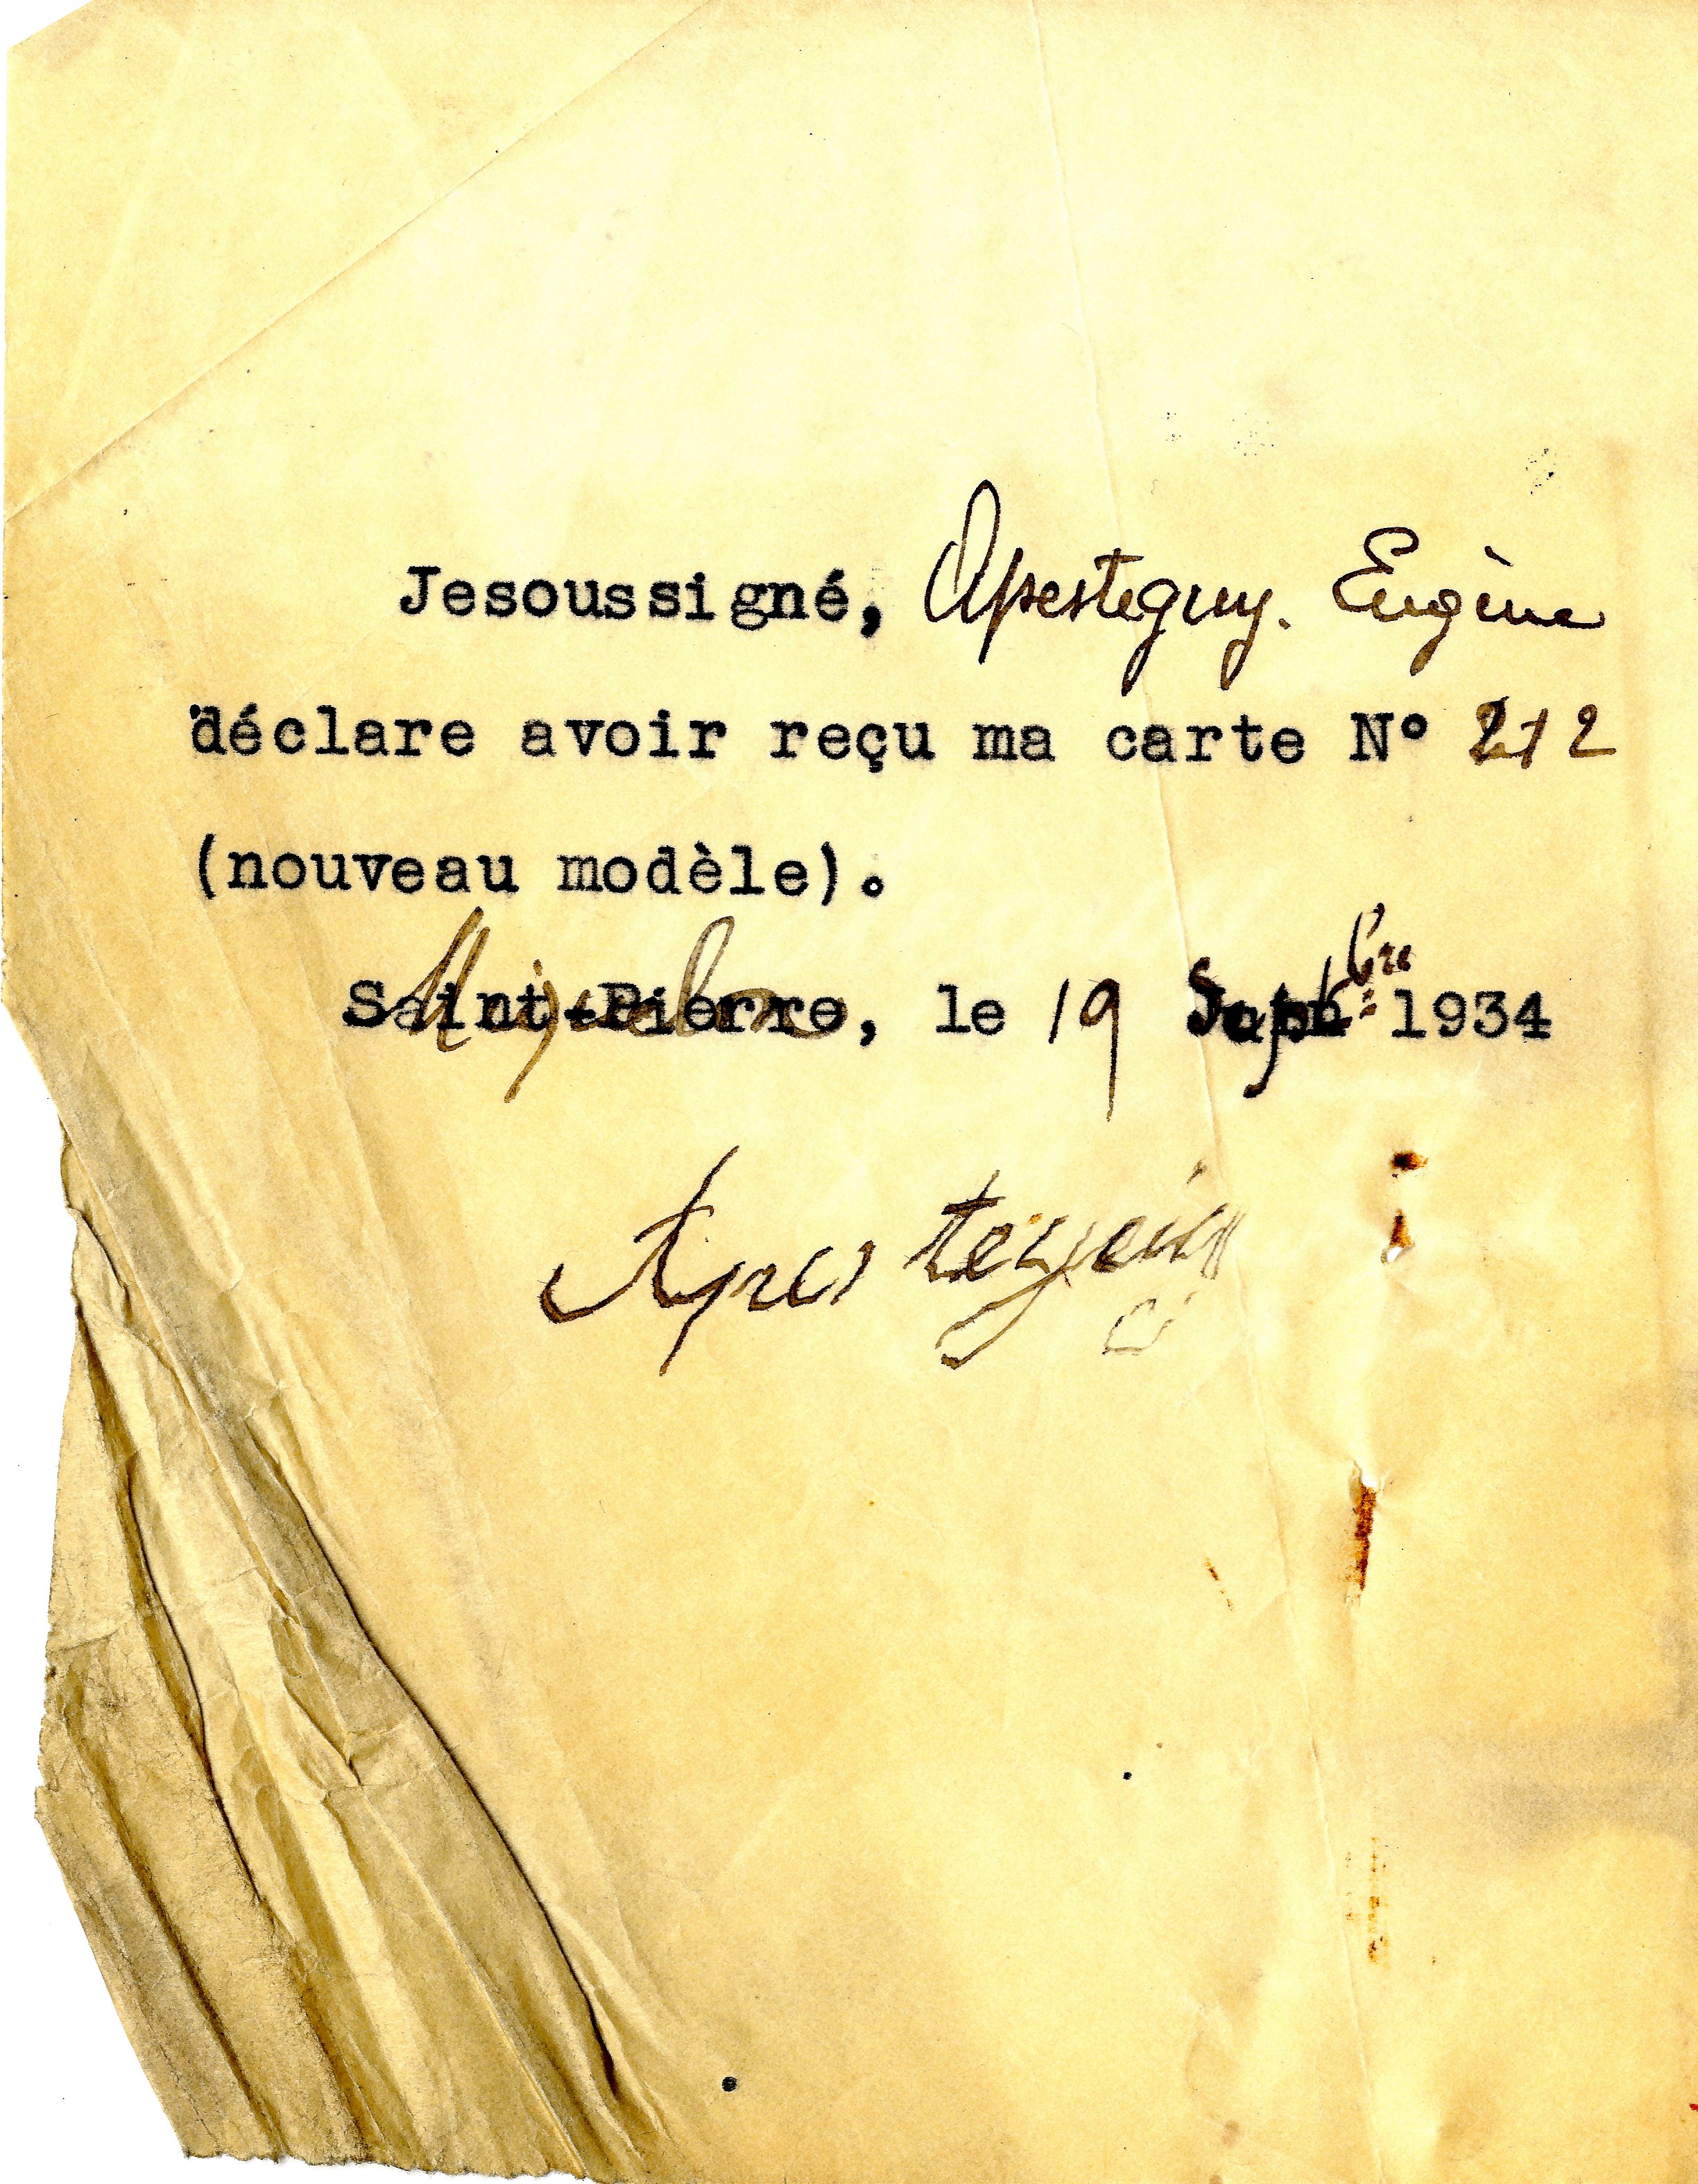 Jesoussigné, Apesteguy. Eugène
déclare avoir reçu ma carte N° 212
(nouveau modèle).
Miquelon, le 19 Septbre 1934
Apesteguy